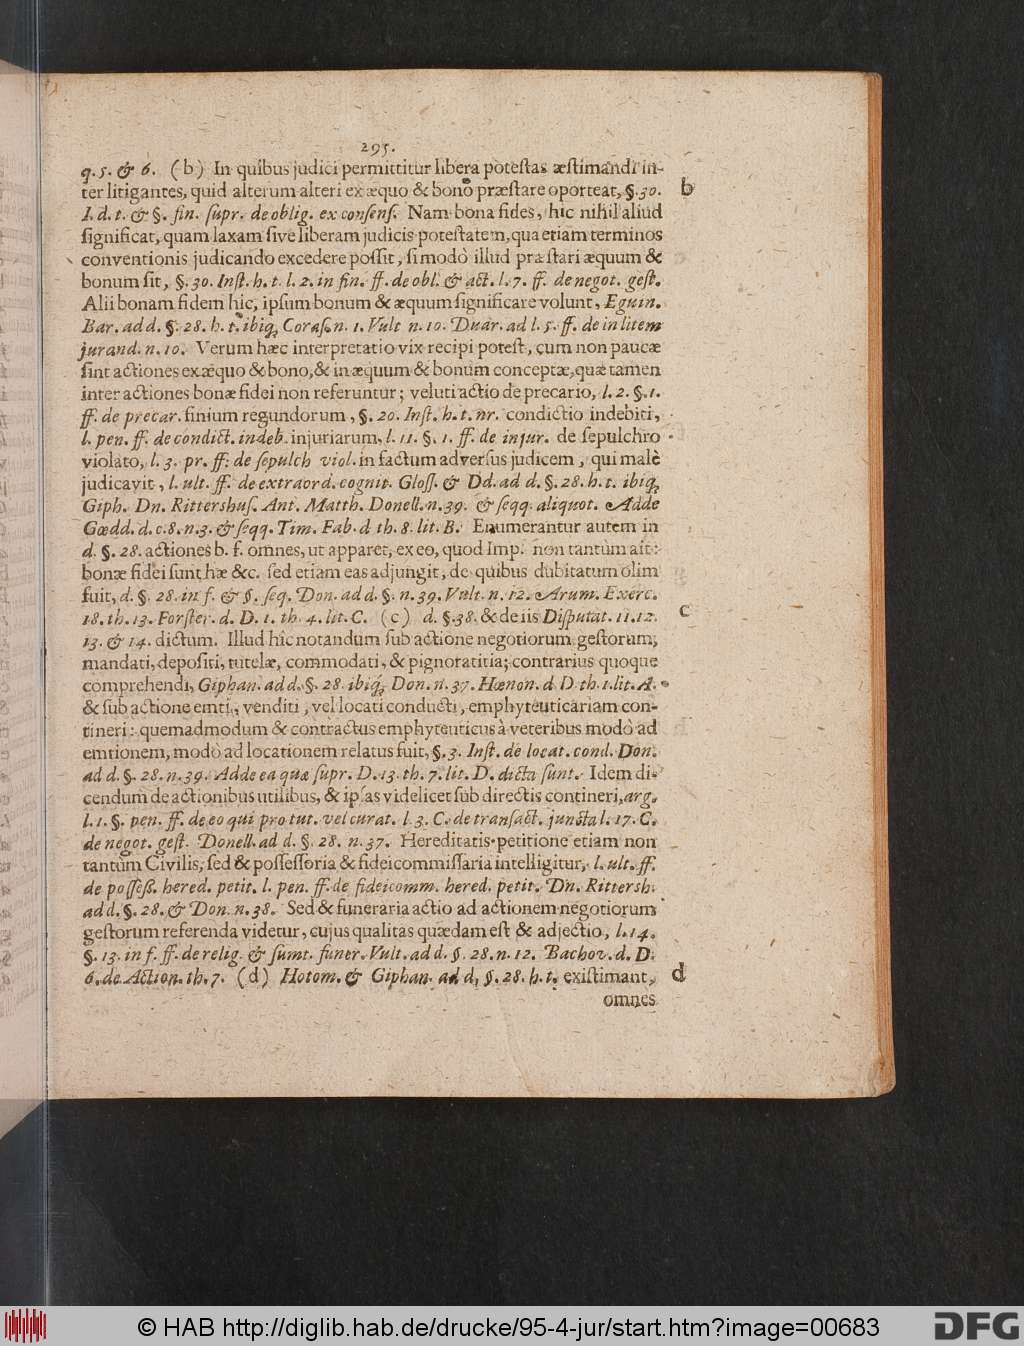 295.
q. 5. & 6. (b) In quibus judici permittitur libera potestas æstimandi in-
ter litigantes, quid alterum alteri ex æquo & bono præstare oporteat, §. 30.
I. d. t. & §. fin. supr. de oblig. ex consens. Nam bona fides, hic nihil aliud
significat, quam laxam sive liberam judicis potestatem, qua etiam terminos
conventionis judicando excedere possit, si modò illud præstari æquum &
bonum sit, §. 30. Inst. h. t. l. 2. in fin. ff. de obl. & act. l. 7. ff. de negot. gest.
Alii bonam fidem hic, ipsum bonum & æquum significare volunt, Eguin.
Bar. ad d. §. 28. h. t. ibiq; Coras. n. 1. Vult n. 10. Duar. ad l. 5. ff. de in litem
jurand. n. 10. Verum hæc interpretatio vix recipi potest, cum non paucæ
sint actiones ex æquo & bono, & in æquum & bonum conceptæ, quæ tamen
inter actiones bonæ fidei non referuntur; veluti actio de precario, l. 2. §. 1.
ff. de precar. finium regundorum, §. 20. Inst. h. t. nr. condictio indebiti,
l. pen. ff. de condict. indeb. injuriarum, l. 11. §. 1. ff. de injur. de sepulchro
violato, l. 3. pr. ff. de sepulch viol. in factum adversus judicem, qui malè
judicavit, l. ult. ff. de extraord. cognit. Gloss. & Dd. ad d. §. 28. h. t. ibiq;
Giph. Dn. Rittershus. Ant. Matth. Donell. n. 39. & seqq. aliquot. Adde
Gœdd. d. c. 8. n. 3. & seqq. Tim. Fab. d th. 8. lit. B. Enumerantur autem in
d. §. 28. actiones b. f. omnes, ut apparet, ex eo, quod Imp. non tantùm ait:
bonæ fidei sunt hæ &c. sed etiam eas adjungit, de quibus dubitatum olim
fuit, d. §. 28. in f. & §. seq. Don. ad d. §. n. 39. Vult. n. 12. Arum. Exerc.
18. th. 13. Forster. d. D. 1. th. 4. lit. C. (c) d. §. 38. & de iis Disputat. 11. 12.
13. & 14. dictum. Illud hîc notandum sub actione negotiorum gestorum,
mandati, depositi, tutelæ, commodati, & pignoratitia; contrarius quoque
comprehendi, Giphan. ad d. §. 28. ibiq; Don. n. 37. Hænon. d. D. th. 1. lit. A.
& sub actione emti, venditi, vel locati conducti, emphyteuticariam con-
tineri: quemadmodum & contractus emphyteuticus à veteribus modò ad
emtionem, modò ad locationem relatus fuit, §. 3. Inst. de locat. cond. Don.
ad d. §. 28. n. 39. Adde ea quæ supr. D. 13. th. 7. lit. D. dicta sunt. Idem di-
cendum de actionibus utilibus, & ipsas videlicet sub directis contineri, arg.
l. 1. §. pen. ff. de eo qui pro tut. vel curat. l. 3. C. de transact. juncta l. 17. C.
de negot. gest. Donell. ad d. §. 28. n. 37. Hereditatis petitione etiam non
tantùm Civilis, sed & possessoria & fideicommissaria intelligitur, l. ult. ff.
de possess. hered. petit. l. pen. ff. de fideicomm. hered. petit. Dn. Rittersh.
ad d. §. 28. & Don. n. 38. Sed & funeraria actio ad actionem negotiorum
gestorum referenda videtur, cujus qualitas quædam est & adjectio, l. 14.
§. 13. in f. ff. de relig. & sumt. funer. Vult. ad d. §. 28. n. 12. Bachov. d. D.
6. de Action. th. 7. (d) Hotom. & Giphan. ad d. §. 28. h. t. existimant,
omnes
b
c
d
© HAB http://diglib.hab.de/drucke/95-4-jur/start.htm?image=00683
DFG